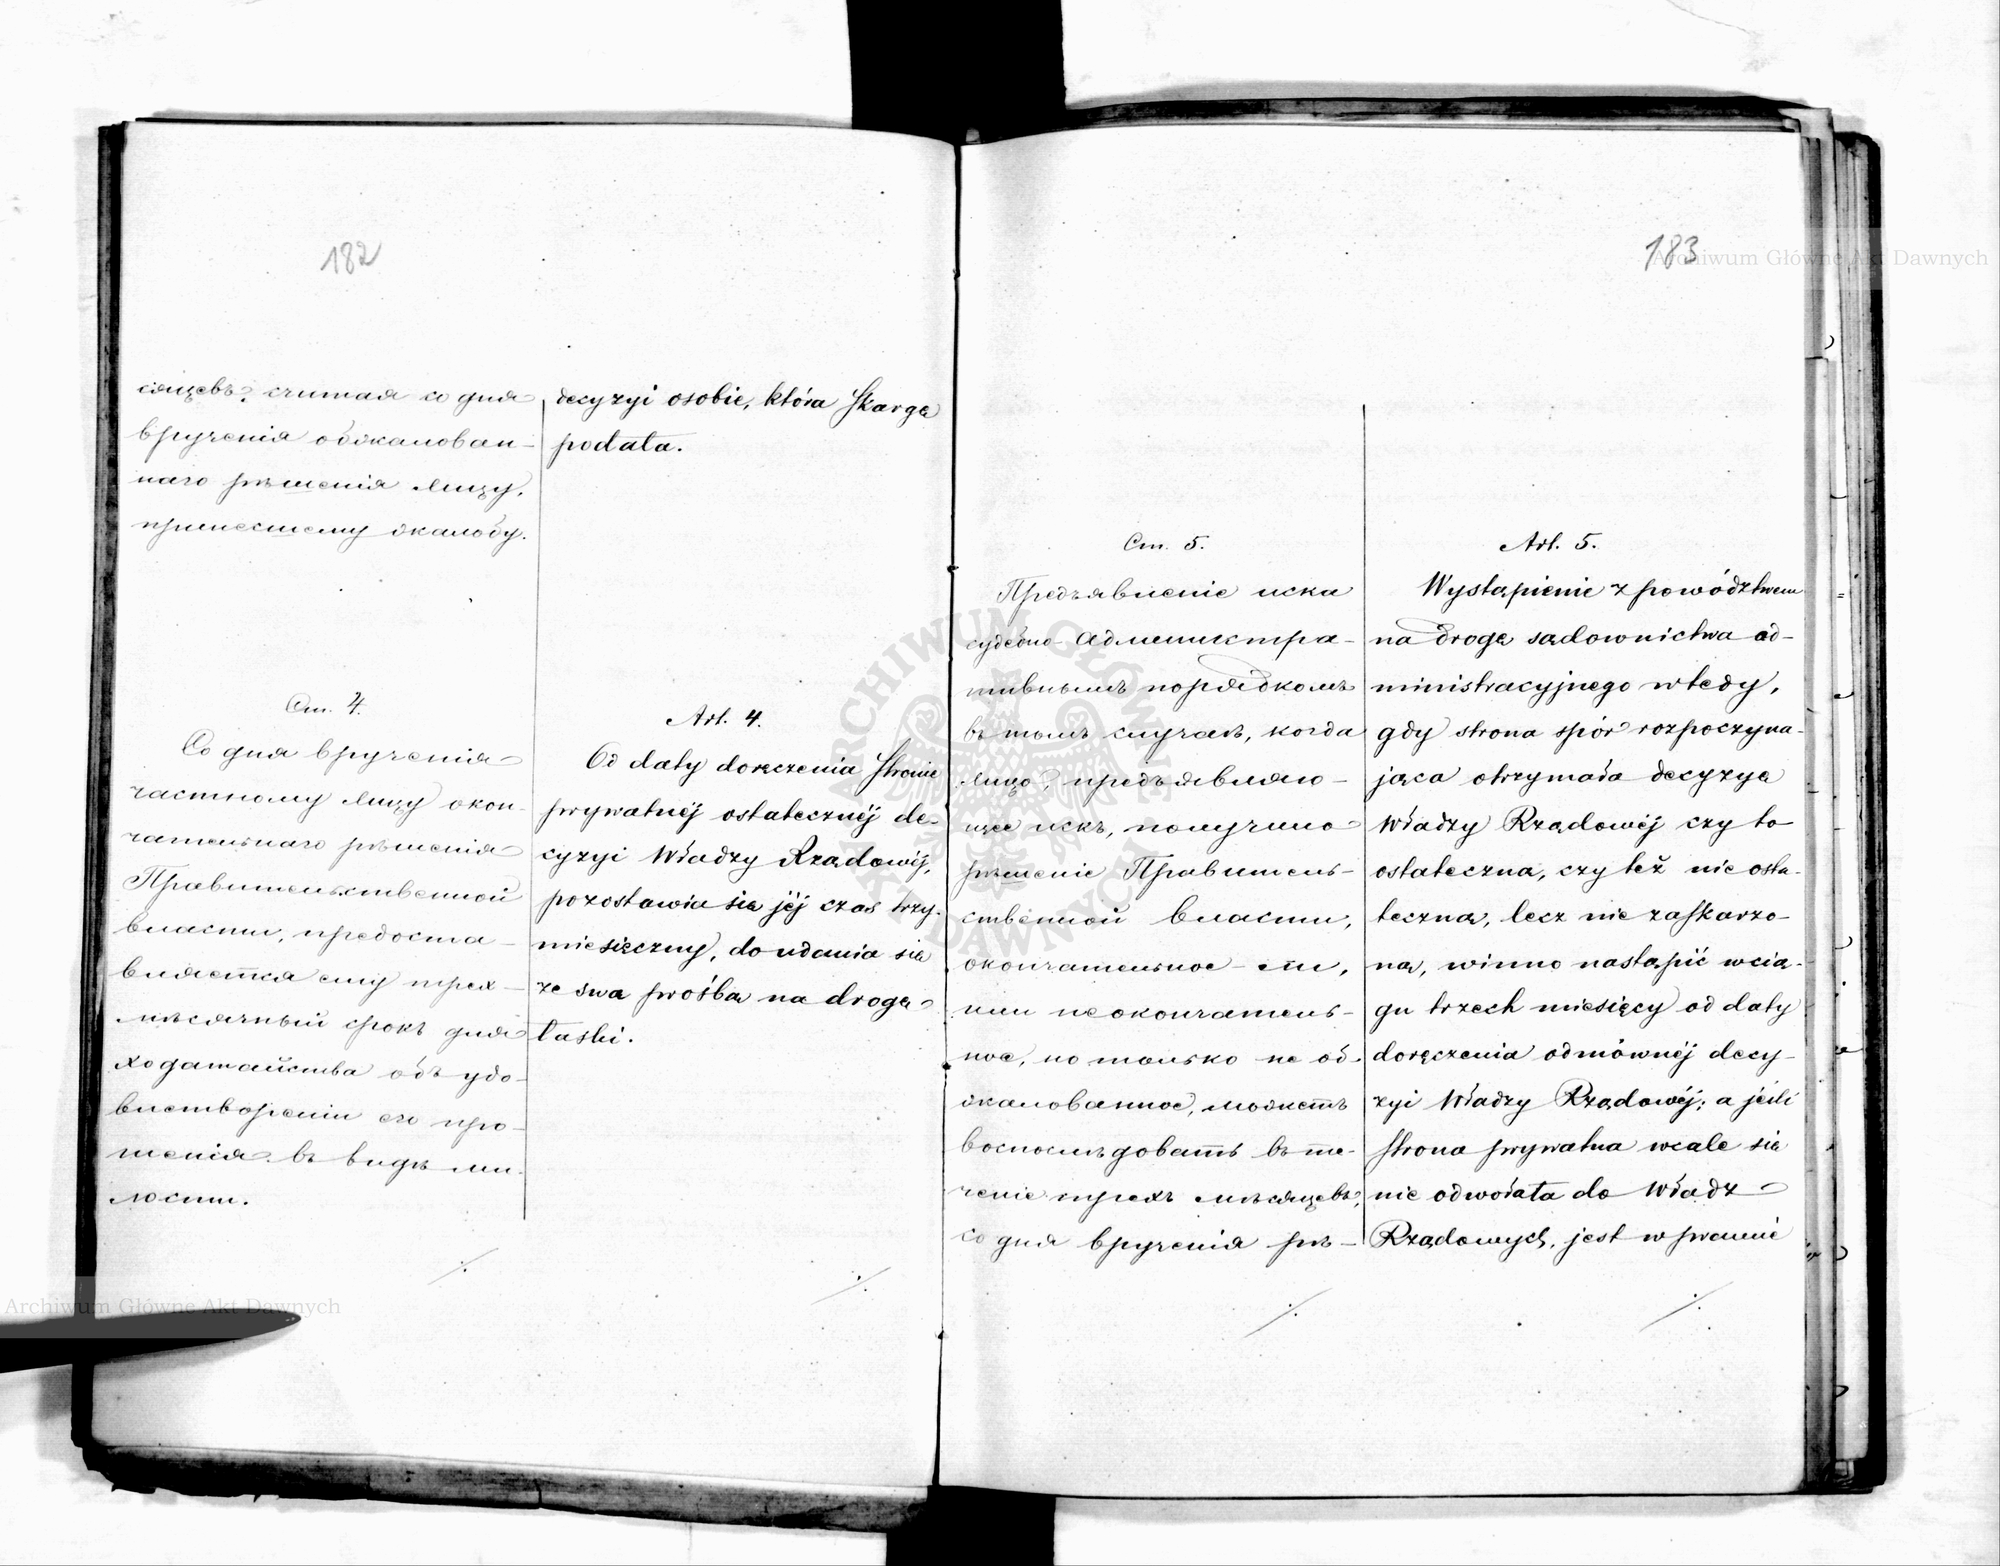 182
сяцевъ, считая со дня
врученія обжалован-
наго рѣшенія лицу,
принесшему жалобу.
Ст. 4.
Со дня врученія
частному лицу окон-
чательнаго рѣшенія
Правительственной
власти, предоста-
вляется ему трех-
мѣсячный срокъ для
ходатайства объ удо-
влетвореніи его про-
шенія въ видѣ ми-
лости.
decyzyi osobie, która skargę
podała.
Art. 4.
Od daty doręczenia stronie
prywatnéj ostatecznéj de-
cyzyi Władzy Rządowéj,
pozostawia się jéj czas trzy-
miesięczny, do udania się
ze swą prośbą na drogę
łaski.
183
Ст. 5.
Предъявленіе иска
судебно-администра-
тивнымъ порядкомъ
въ томъ случаѣ, когда
лицо, предъявляю-
щее искъ, получило
рѣшеніе Правитель-
ственной власти,
окончательное-ли,
или неокончатель-
ное, но только не об-
жалованное, можетъ
воспослѣдовать въ те-
ченіе трехъ мѣсяцевъ,
со дня врученія рѣ-
Art. 5.
Wystąpienie z powództwem
na drogę sądownictwa ad-
ministracyjnego wtedy,
gdy strona spór rozpoczyna-
jąca otrzymała decyzyę
Władzy Rządowéj czy to
ostateczną, czy też nie osta-
teczną, lecz nie zaskarżo-
ną, winno nastąpić w cią-
gu trzech miesięcy od daty
doręczenia odmównéj decy-
zyi Władzy Rządowéj; a jeśli
strona prywatna wcale się
nie odwołała do Władz
Rządowych, jest w prawie
Archiwum Główne Akt Dawnych
Archiwum Główne Akt Dawnych
ARCHIWUM GŁÓWNE AKT DAWNYCH